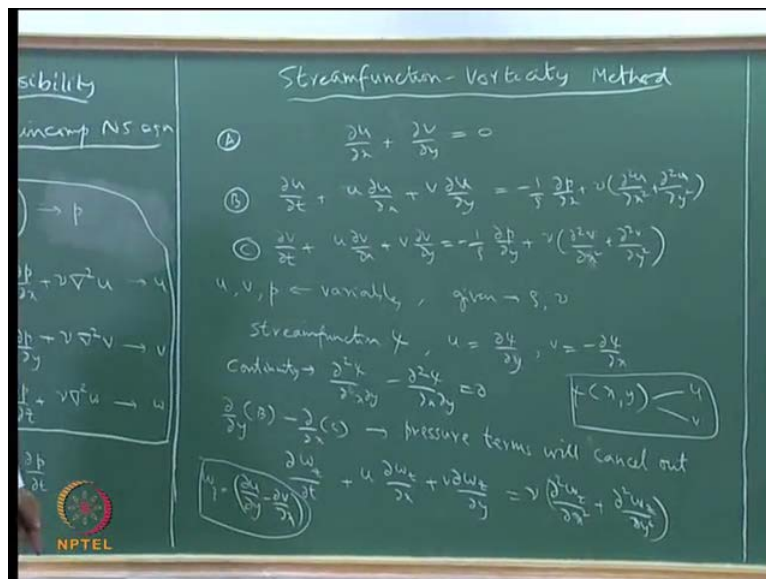 sibility
incomp NS eqn
) → p
∂p/∂x + ν∇²u → u
∂p/∂y + ν∇²v → v
∂p/∂t + ν∇²w → w
∂p/∂t
Streamfunction - Vorticity Method
Ⓐ ∂u/∂x + ∂v/∂y = 0
Ⓑ ∂u/∂t + u ∂u/∂x + v ∂u/∂y = -1/ρ ∂p/∂x + ν(∂²u/∂x² + ∂²u/∂y²)
Ⓒ ∂v/∂t + u ∂v/∂x + v ∂v/∂y = -1/ρ ∂p/∂y + ν(∂²v/∂x² + ∂²v/∂y²)
u, v, p ← variables, given → ρ, ν
Streamfunction ψ, u = ∂ψ/∂y, v = -∂ψ/∂x
Continuity → ∂²ψ/∂x∂y - ∂²ψ/∂x∂y = 0
ψ(x, y) u v
∂/∂y (B) - ∂/∂x (C) → pressure terms will cancel out
∂ω_z/∂t + u ∂ω_z/∂x + v ∂ω_z/∂y = ν(∂²ω_z/∂x² + ∂²ω_z/∂y²)
ω_z = (∂u/∂y - ∂v/∂x)
NPTEL